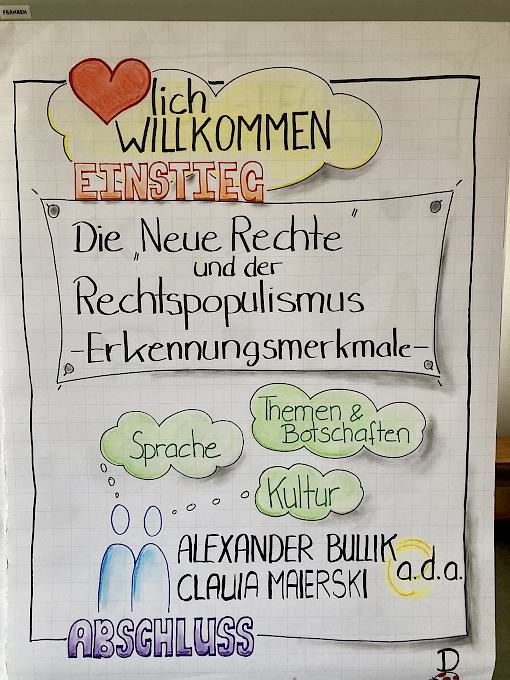 FRANKEN
lich
WILLKOMMEN
EINSTIEG
Die „Neue Rechte"
und der
Rechtspopulismus
-Erkennungsmerkmale-
Themen &
Botschaften
Sprache
Kultur
ALEXANDER BULLIK
CLAUIA MAIERSKI
a.d.a.
ABSCHLUSS
D